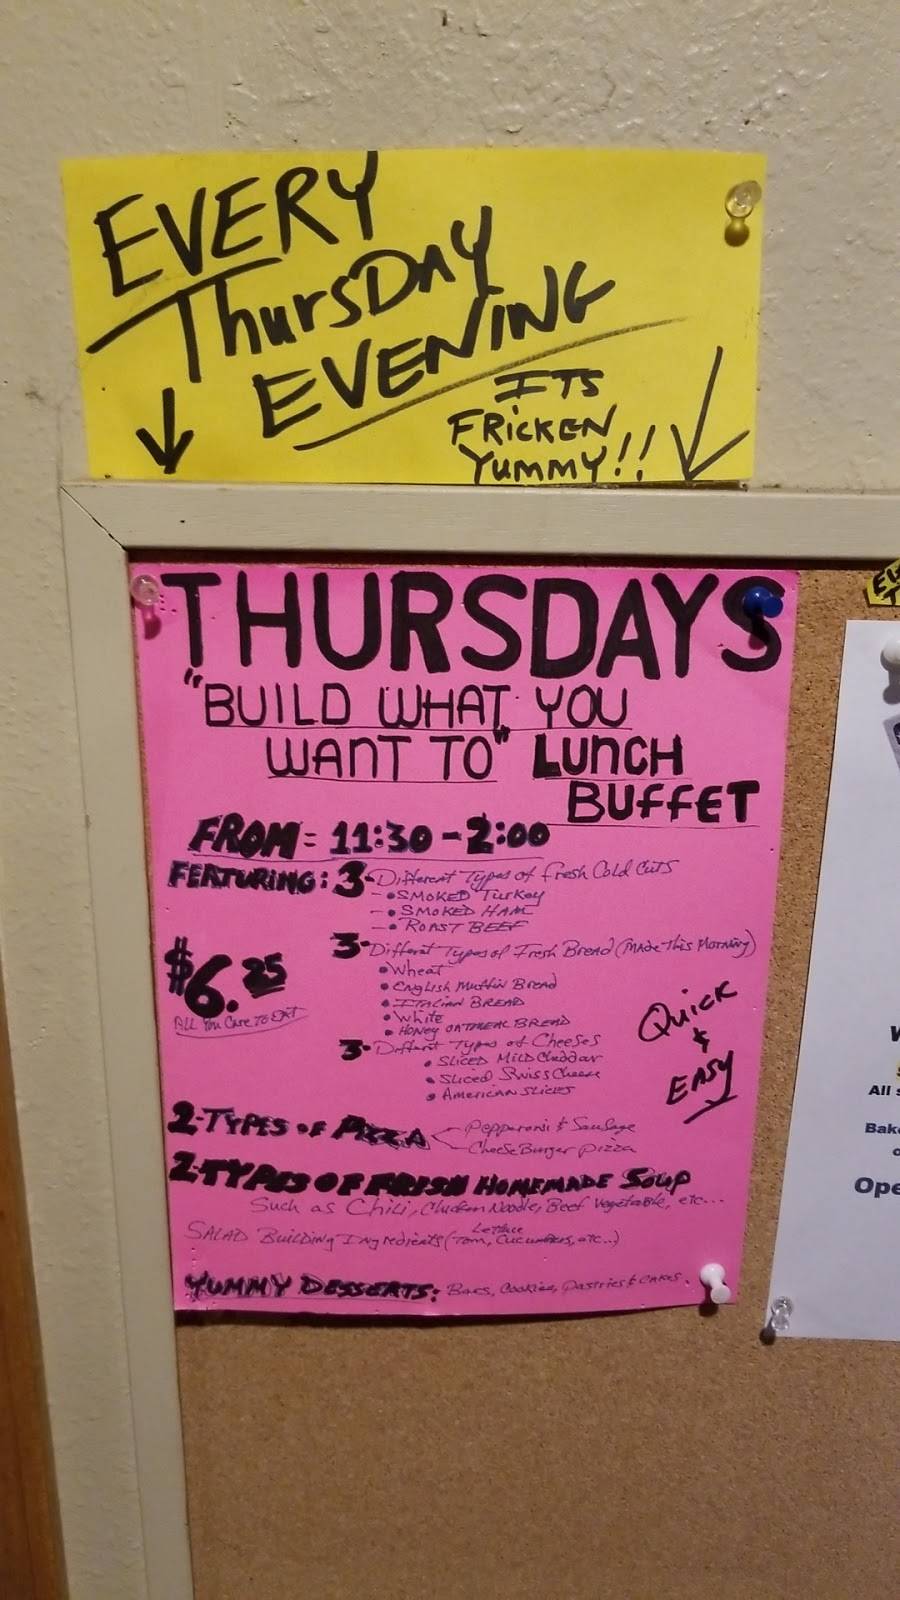 EVERY
ThursDAY
EVENING
ITS
FRICKEN
YUMMY!!
THURSDAYS
"BUILD WHAT YOU
WANT TO" LUNCH
BUFFET
FROM = 11:30 - 2:00
FERTURING: 3- Different Types of Fresh Cold Cuts
- • SMOKED Turkey
- • SMOKED HAM
- • ROAST BEEF
$6.25
ALL You Care To EAT
3- Different Types of Fresh Bread (MADE THIS MORNING)
• Wheat
• English Muffin Bread
• ITALIAN BREAD
• White
• HONEY OATMEAL BREAD
Quick
&
EASY
3- Different Types of Cheeses
• Sliced Mild Cheddar
• Sliced Swiss Cheese
• AMERICAN SLICES
2-TYPES OF PIZZA < Pepperoni & Sausage
CheeseBurger Pizza
2-TYPES OF FRESH HOMEMADE SOUP
Such as Chili, Chicken Noodle, Beef Vegetable, etc...
SALAD Building Ingredients (Lettuce Tom, Cucumbers, etc..)
YUMMY DESSERTS: Bars, Cookies, Pastries & Cakes.
All
Bake
Ope